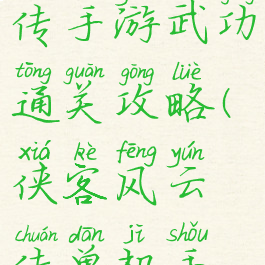 传手游武功
tōng guān gōng lüè
通关攻略(
xiá kè fēng yún
侠客风云
chuán dān jī shǒu
传单机手